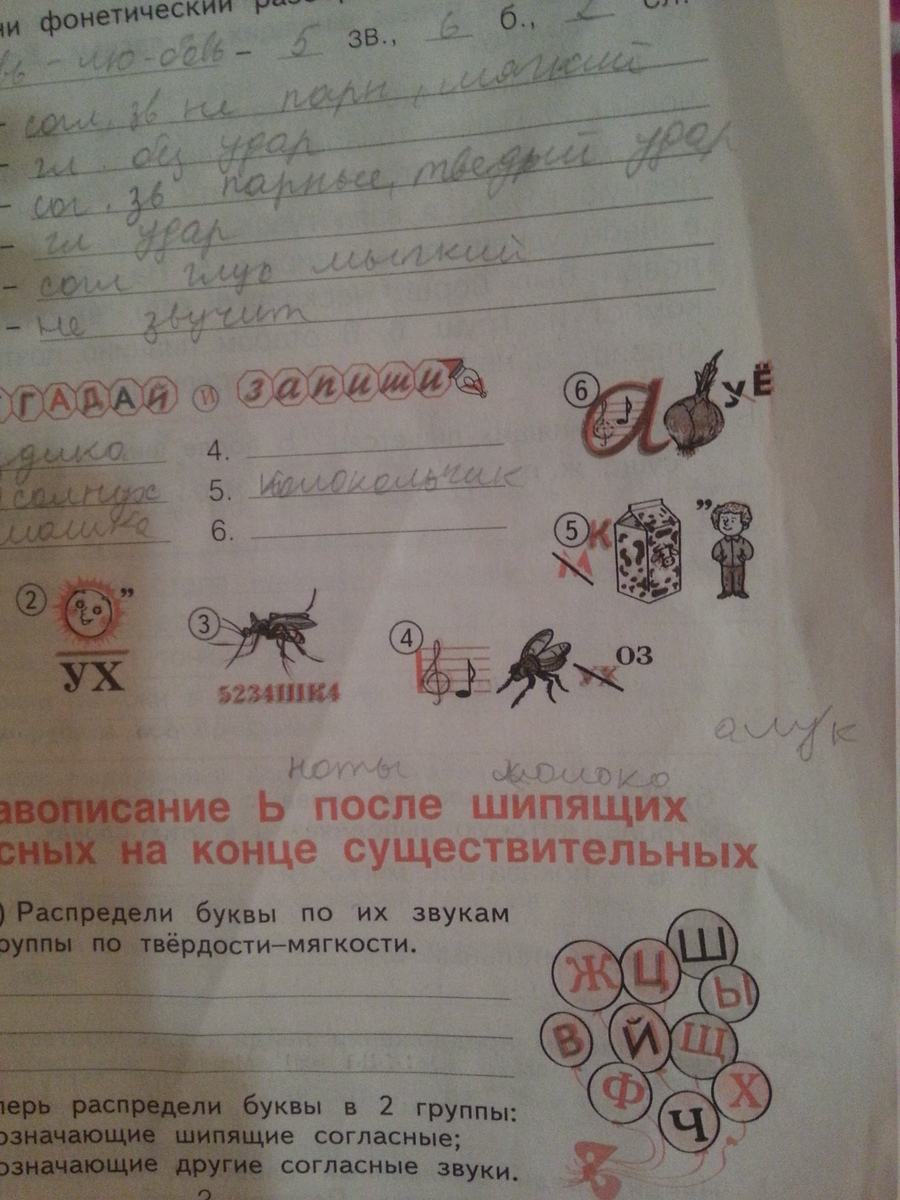 ни фонетический разбор
вь - лю-бовь - 5 зв., 6 б., 2 сл.
- согл. зв не парн, мягкий
- гл. удар
- сог. зв парные, твердый удар
- гл удар
- согл глус мыгкий
- не звучит
ГАДАЙ И запиши
дико 4.
солнух 5. колокольчик
машка 6.
6 а У Ё
5 К М ”
2 ” УХ
3 5234ШК4
4 УХ ОЗ
алук
ноты молоко
авописание Ь после шипящих
сных на конце существительных
) Распредели буквы по их звукам
руппы по твёрдости–мягкости.
Ш
Ж Ц
Ы
В Й Щ
Ф Х
Ч
перь распредели буквы в 2 группы:
означающие шипящие согласные;
означающие другие согласные звуки.